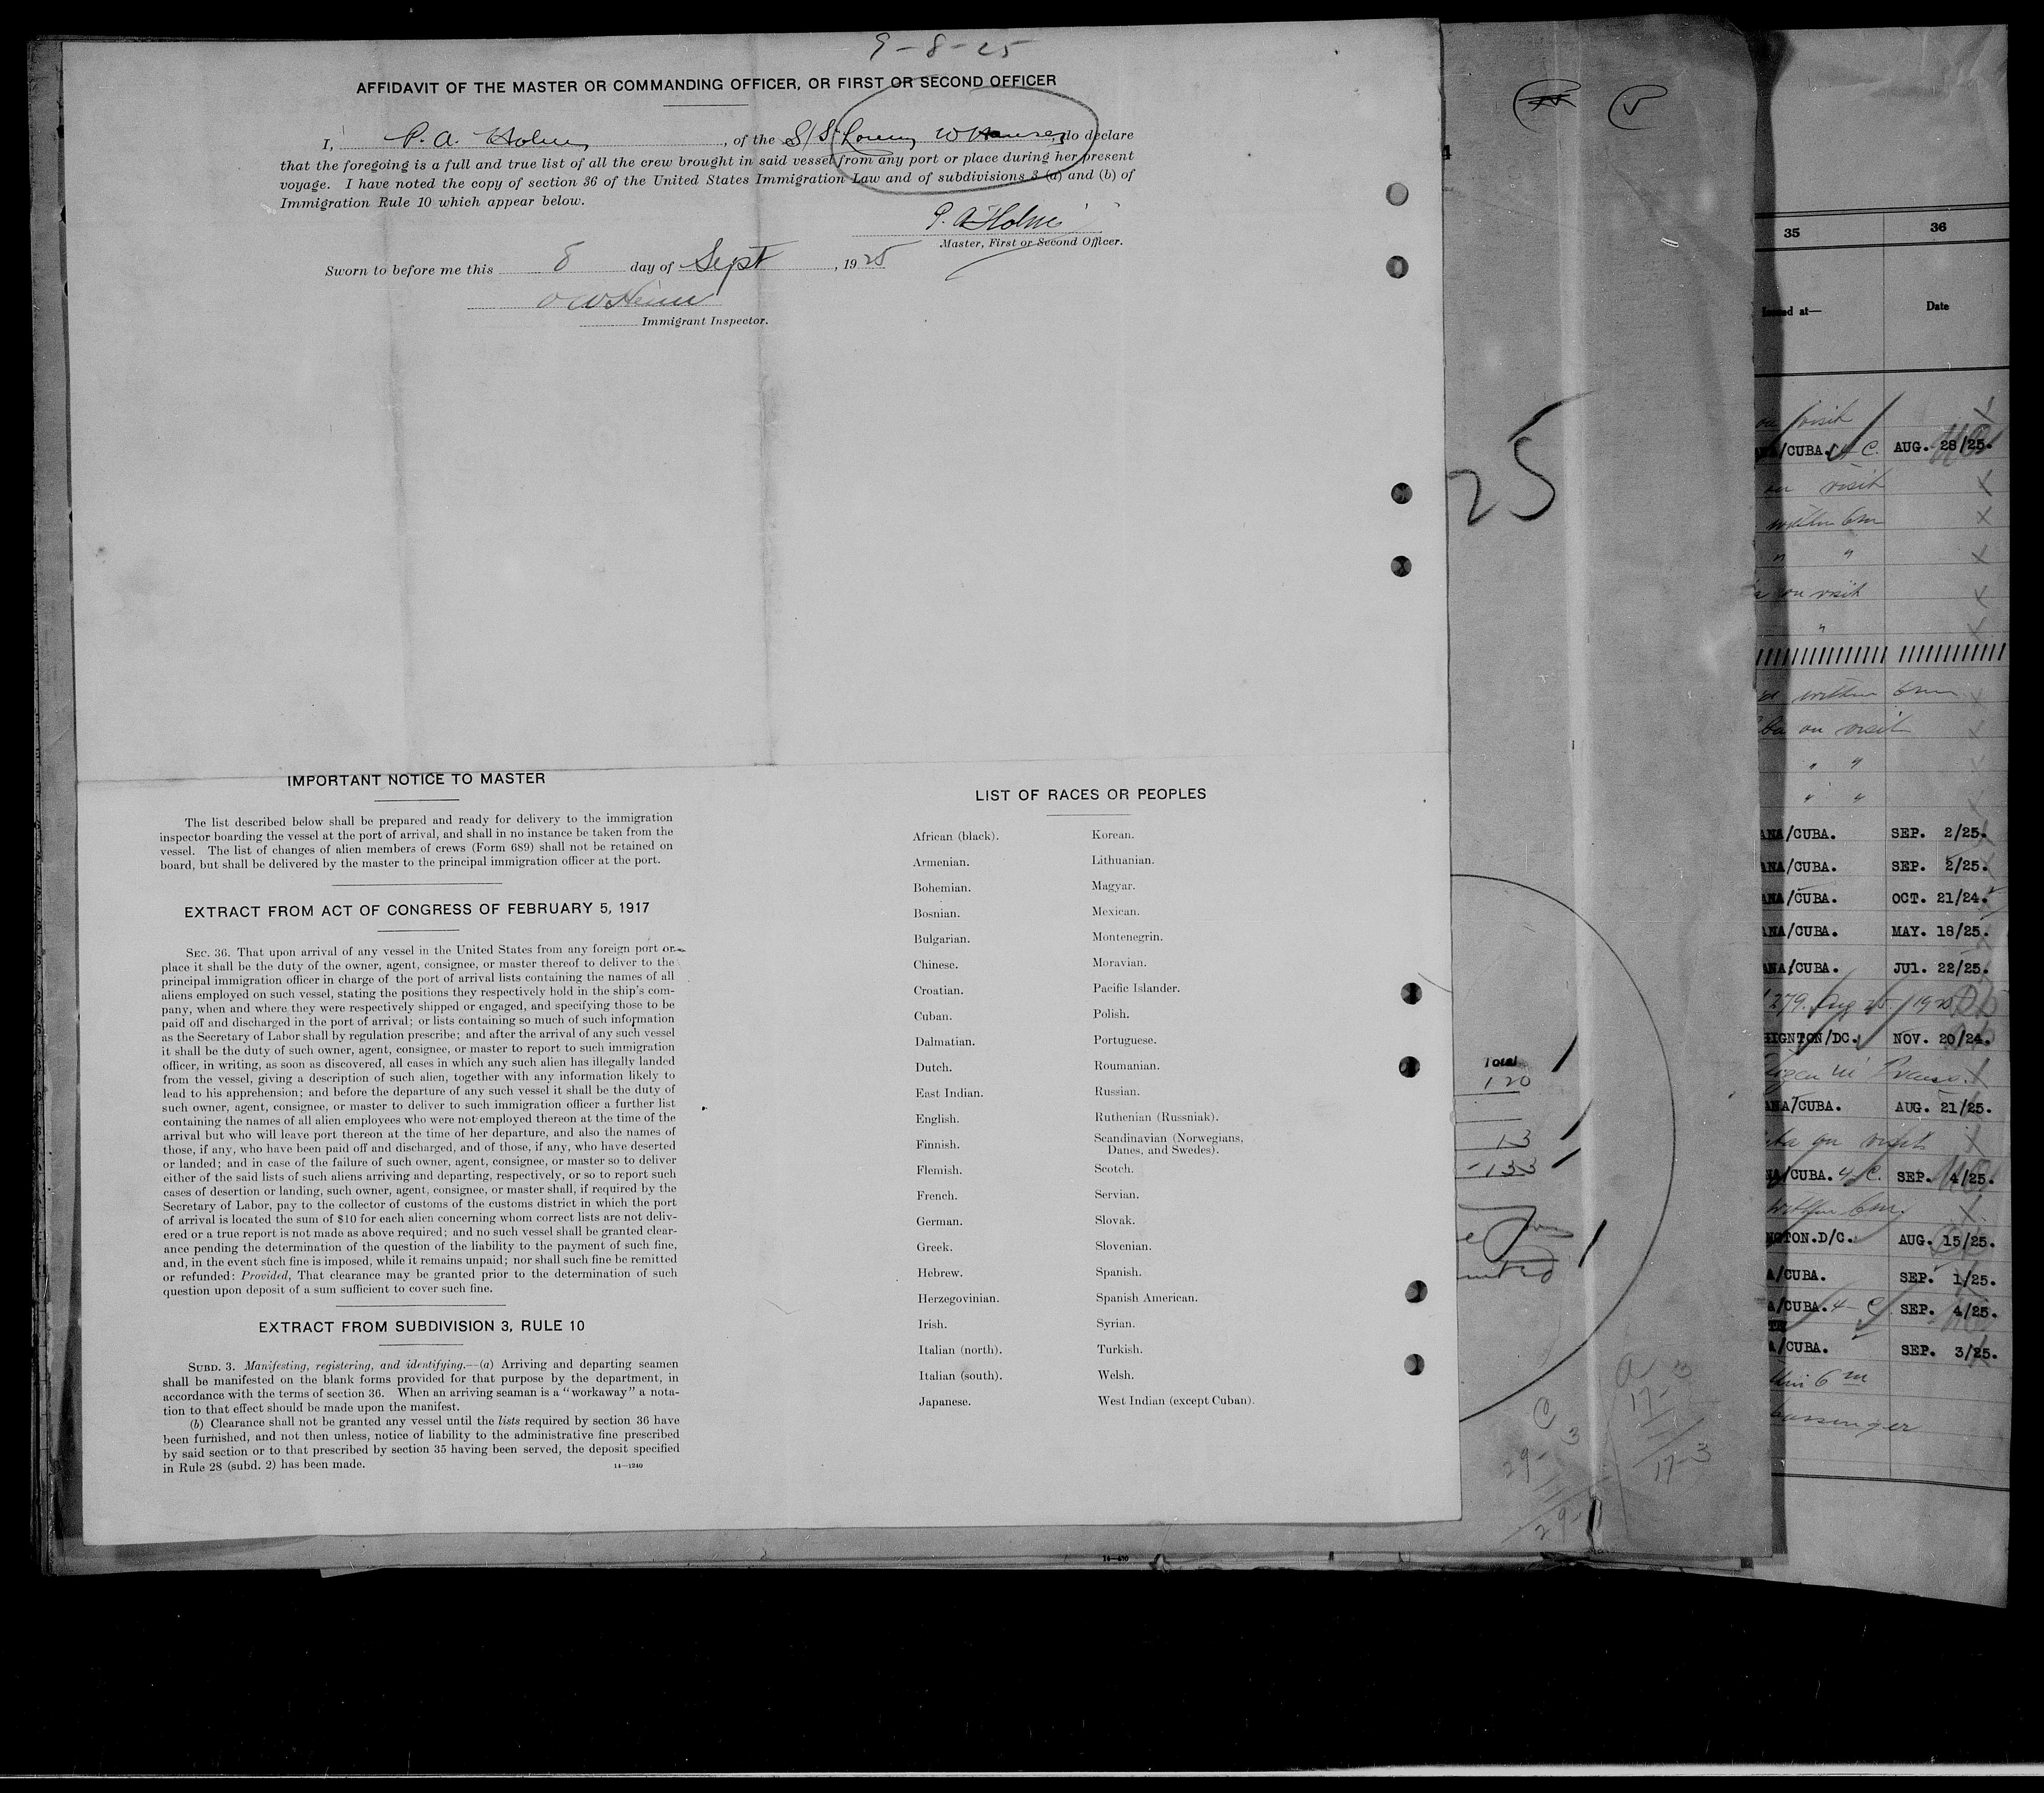 9-8-25
AFFIDAVIT OF THE MASTER OR COMMANDING OFFICER, OR FIRST OR SECOND OFFICER
I, P. A. Holm, of the S/S W Hansen, do declare
that the foregoing is a full and true list of all the crew brought in said vessel from any port or place during her present
voyage. I have noted the copy of section 36 of the United States Immigration Law and of subdivisions 3 (a) and (b) of
Immigration Rule 10 which appear below.
P. A. Holm
Master, First or Second Officer.
Sworn to before me this 8 day of Sept, 1925
Immigrant Inspector.
IMPORTANT NOTICE TO MASTER
The list described below shall be prepared and ready for delivery to the immigration
inspector boarding the vessel at the port of arrival, and shall in no instance be taken from the
vessel. The list of changes of alien members of crews (Form 689) shall not be retained on
board, but shall be delivered by the master to the principal immigration officer at the port.
EXTRACT FROM ACT OF CONGRESS OF FEBRUARY 5, 1917
SEC. 36. That upon arrival of any vessel in the United States from any foreign port or
place it shall be the duty of the owner, agent, consignee, or master thereof to deliver to the
principal immigration officer in charge of the port of arrival lists containing the names of all
aliens employed on such vessel, stating the positions they respectively hold in the ship's com-
pany, when and where they were respectively shipped or engaged, and specifying those to be
paid off and discharged in the port of arrival; or lists containing so much of such information
as the Secretary of Labor shall by regulation prescribe; and after the arrival of any such vessel
it shall be the duty of such owner, agent, consignee, or master to report to such immigration
officer, in writing, as soon as discovered, all cases in which any such alien has illegally landed
from the vessel, giving a description of such alien, together with any information likely to
lead to his apprehension; and before the departure of any such vessel it shall be the duty of
such owner, agent, consignee, or master to deliver to such immigration officer a further list
containing the names of all alien employees who were not employed thereon at the time of the
arrival but who will leave port thereon at the time of her departure, and also the names of
those, if any, who have been paid off and discharged, and of those, if any, who have deserted
or landed; and in case of the failure of such owner, agent, consignee, or master so to deliver
either of the said lists of such aliens arriving and departing, respectively, or so to report such
cases of desertion or landing, such owner, agent, consignee, or master shall, if required by the
Secretary of Labor, pay to the collector of customs of the customs district in which the port
of arrival is located the sum of $10 for each alien concerning whom correct lists are not deliv-
ered or a true report is not made as above required; and no such vessel shall be granted clear-
ance pending the determination of the question of the liability to the payment of such fine,
and, in the event such fine is imposed, while it remains unpaid; nor shall such fine be remitted
or refunded: Provided, That clearance may be granted prior to the determination of such
question upon deposit of a sum sufficient to cover such fine.
EXTRACT FROM SUBDIVISION 3, RULE 10
SUBD. 3. Manifesting, registering, and identifying.—(a) Arriving and departing seamen
shall be manifested on the blank forms provided for that purpose by the department, in
accordance with the terms of section 36. When an arriving seaman is a "workaway" a nota-
tion to that effect should be made upon the manifest.
(b) Clearance shall not be granted any vessel until the lists required by section 36 have
been furnished, and not then unless, notice of liability to the administrative fine prescribed
by said section or to that prescribed by section 35 having been served, the deposit specified
in Rule 28 (subd. 2) has been made.
14—1240
LIST OF RACES OR PEOPLES
African (black).
Armenian.
Bohemian.
Bosnian.
Bulgarian.
Chinese.
Croatian.
Cuban.
Dalmatian.
Dutch.
East Indian.
English.
Finnish.
Flemish.
French.
German.
Greek.
Hebrew.
Herzegovinian.
Irish.
Italian (north).
Italian (south).
Japanese.
Korean.
Lithuanian.
Magyar.
Mexican.
Montenegrin.
Moravian.
Pacific Islander.
Polish.
Portuguese.
Roumanian.
Russian.
Ruthenian (Russniak).
Scandinavian (Norwegians,
Danes, and Swedes).
Scotch.
Servian.
Slovak.
Slovenian.
Spanish.
Spanish American.
Syrian.
Turkish.
Welsh.
West Indian (except Cuban).
25
Total
120
13
133
C 3
29-
29-11
a 3
17-3
17-3
35 36
Issued at— Date
on visit
/CUBA. 4 C. AUG. 28/25.
on visit
within 6m
" "
on visit
"
within 6m
on visit
" "
" "
ANA/CUBA. SEP. 2/25.
ANA/CUBA. SEP. 2/25.
ANA/CUBA. OCT. 21/24.
ANA/CUBA. MAY. 18/25.
ANA/CUBA. JUl. 22/25.
279. Aug 25/1925
HIGNTON/DC. NOV. 20/24.
ANA/CUBA. AUG. 21/25.
on visit
NA/CUBA. 4 C. SEP. 4/25.
within 6m.
NGTON.D/C. AUG. 15/25.
A/CUBA. SEP. 1/25.
A/CUBA. 4-C SEP. 4/25.
A/CUBA. SEP. 3/25.
6m
passenger